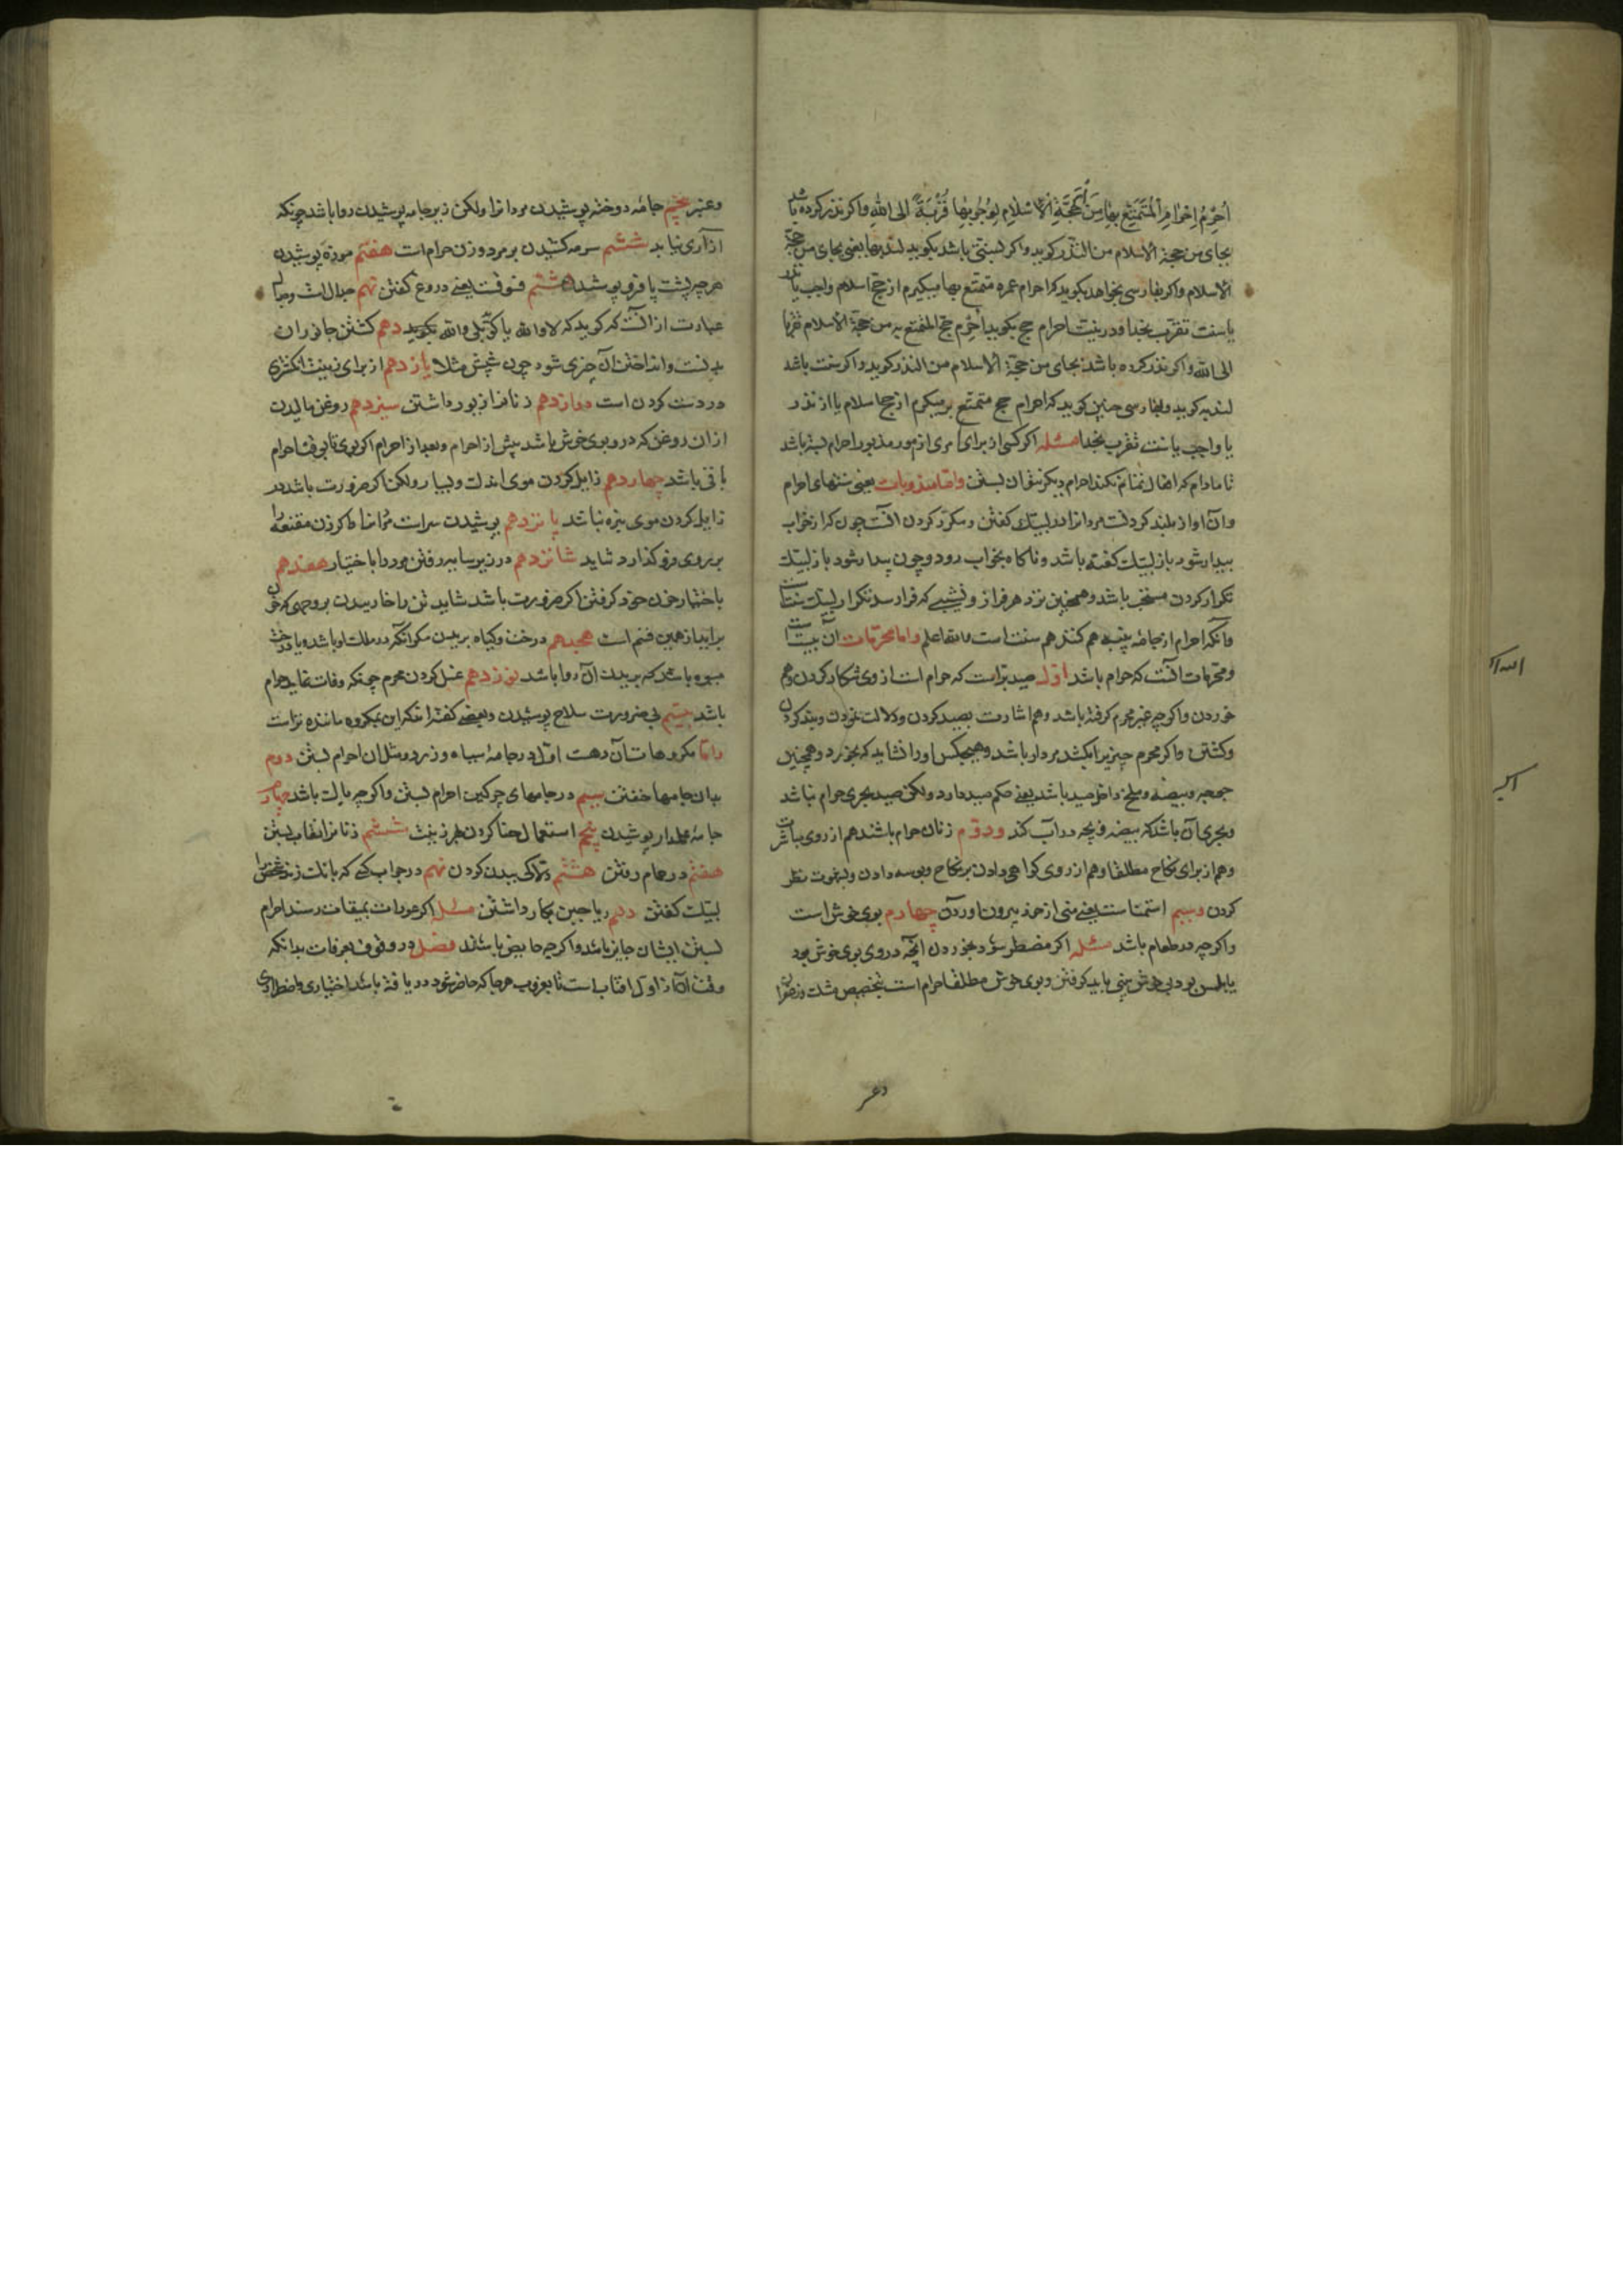 اُحْرِمُ اِحْرَامَ الْمُتَمَتِّعِ بِهَا مِنْ حَجَّةِ الْاِسْلَامِ لِوُجُوبِهَا قُرْبَةً الی الله واکر نذر کرده باشد
بجای من حجة الاسلام من النذر کوید واکر بسنتی باشد بکوید لندبها یعنی بجای من حجة
الاسلام واکر بفارسی بخواهد بکوید که احرام عمره متمتع بها میکیرم از حج اسلام واجب یا نذر
یا سنت تقرّب بخدا ودر نیت احرام حج بکوید اُحْرِم حج المتمتع به من حجة الاسلام قربة
الی الله واکر نذر کرده باشد بجای من حجة الاسلام من النذر کوید واکر سنت باشد
لندبه کوید وبفارسی چنین کوید که احرام حج متمتع بر میکیرم از حج اسلام یا از نذر
یا واجب یا سنت تقرب بخدا مسئله اکر کسی از برای امری از امور مذبور احرام بسته باشد
تا مادام که افعال تمام نکند احرام دیکر نتوان بستن وامّا مندوبات یعنی سنتهای احرام
وان اواز بلند کردنست مردانرا در لبیک کفتن ومکرّر کردن انست چون که از خواب
بیدار شود باز لبیک کفته باشد وناکاه بخواب رود وچون بیدار شود باز لبیک
تکرار کردن مستحب باشد وهمچنین نزد هر فراز ونشیبی که فرا رسد تکرار لبیک سنتست
وآنکه احرام از جامه پنبه هم کند هم سنت است والله اعلم واما محرّمات آن بیست است
ومحرّمات انست که حرام باشد اوّل صید برّ است که حرام است از روی شکار کردن وهم
خوردن واکرچه غیر محرم کرفته باشد وهم اشارت بصید کردن ودلالت نمودن وبند کردن
وکشتن واکر محرم چیزیرا بکشد مردار باشد وهیچکس اورا نشاید که بخورد وهمچنین
جمع وبیضه وملخ داخل صید باشد یعنی حکم صید دارد ولکن صید بحری حرام نباشد
وبحری آن باشد که بیضه وبچه در آب کند ودوّم زنان حرام باشند هم از روی مباشرت
وهم از برای نکاح مطلقا وهم از روی کواهی دادن بر نکاح وبوسه دادن وبشهوت نظر
کردن وسیم استمناست یعنی منی از خود بیرون اوردن چهارم بوی خوش است
واکرچه در طعام باشد مسئله اکر مضطر شود بخوردن انچه در وی بوی خوش بود
بوی خوش بینی باید کرفتن وبوی خوش مطلقا حرام است بتخصیص مشک وزعفران
دعر
وعنبر پنجم جامه دوخته پوشیدن مردانرا ولکن زیر جامه پوشیدن روا باشد چونکه
ازاری نیابد ششم سرمه کشیدن بر مرد وزن حرام است هفتم موزه پوشیدن
هرچه پشت پا فرو پوشد هشتم فسوقست یعنی دروغ کفتن نهم جدال است وجدال
عبارت از انست که کوید که لا والله یا کوید بلی والله بکوید دهم کشتن جانوران
بدنست وانداختن ان چیزی شود چون شپش مثلا یازدهم از برای زینت انکشتری
در دست کردن است دوازدهم زنانرا زیور داشتن سیزدهم روغن مالیدن
ازان روغن که در و بوی خوش باشد پیش از احرام وبعد از احرام اکر بوی تا بوقت احرام
باقی باشد چهاردهم زایل کردن موی اندک وبسیار ولکن اکر ضرورت باشد در
زایل کردن موی بزه نباشد پانزدهم پوشیدن سر است مردانرا اما اکر زن مقنعه را
بر روی فرو کذارد شاید شانزدهم در زیر سایه رفتن مرد را باختیار هفدهم
باختیار خون خود کرفتن اکر ضرورت باشد شاید تن را خاریدن بر وجهی که خون
براید از همین قسم است هجدهم درخت وکیاه بریدن مکر انکه در ملک او باشد ویا درخت
میوه باشد که بریدن ان روا باشد نوزدهم غسل کردن محرم چونکه وفات نماید حرام
باشد بیستم بی ضرورت سلاح پوشیدن وبعضی کفته اند که این بمکروه ماننده تر است
وامّا مکروهات آن دهست اوّل در جامه سیاه وزرد ومثل ان احرام بستن دوم
بدان جامها خفتن سیم در جامهای چرکین احرام بستن واکرچه پاک باشد چهارم
جامه علمدار پوشیدن پنجم استعمال حنا کردن بجهة زینت ششم زنانرا نقاب بستن
هفتم در حمام رفتن هشتم دلاکی بدن کردن نهم در جواب کسی که بانک زند شخص را
لبیک کفتن دهم ریاحین بکار داشتن مسئله اکر عورات بمیقات رسند احرام
بستن ایشان جایز باشد واکرچه حایض باشند فصل در وقوف بعرفات بدانکه
وقت آن از اول افتاب است تا بغروب هرجا که حاضر شود دریافته باشد اختیاری واضطراری